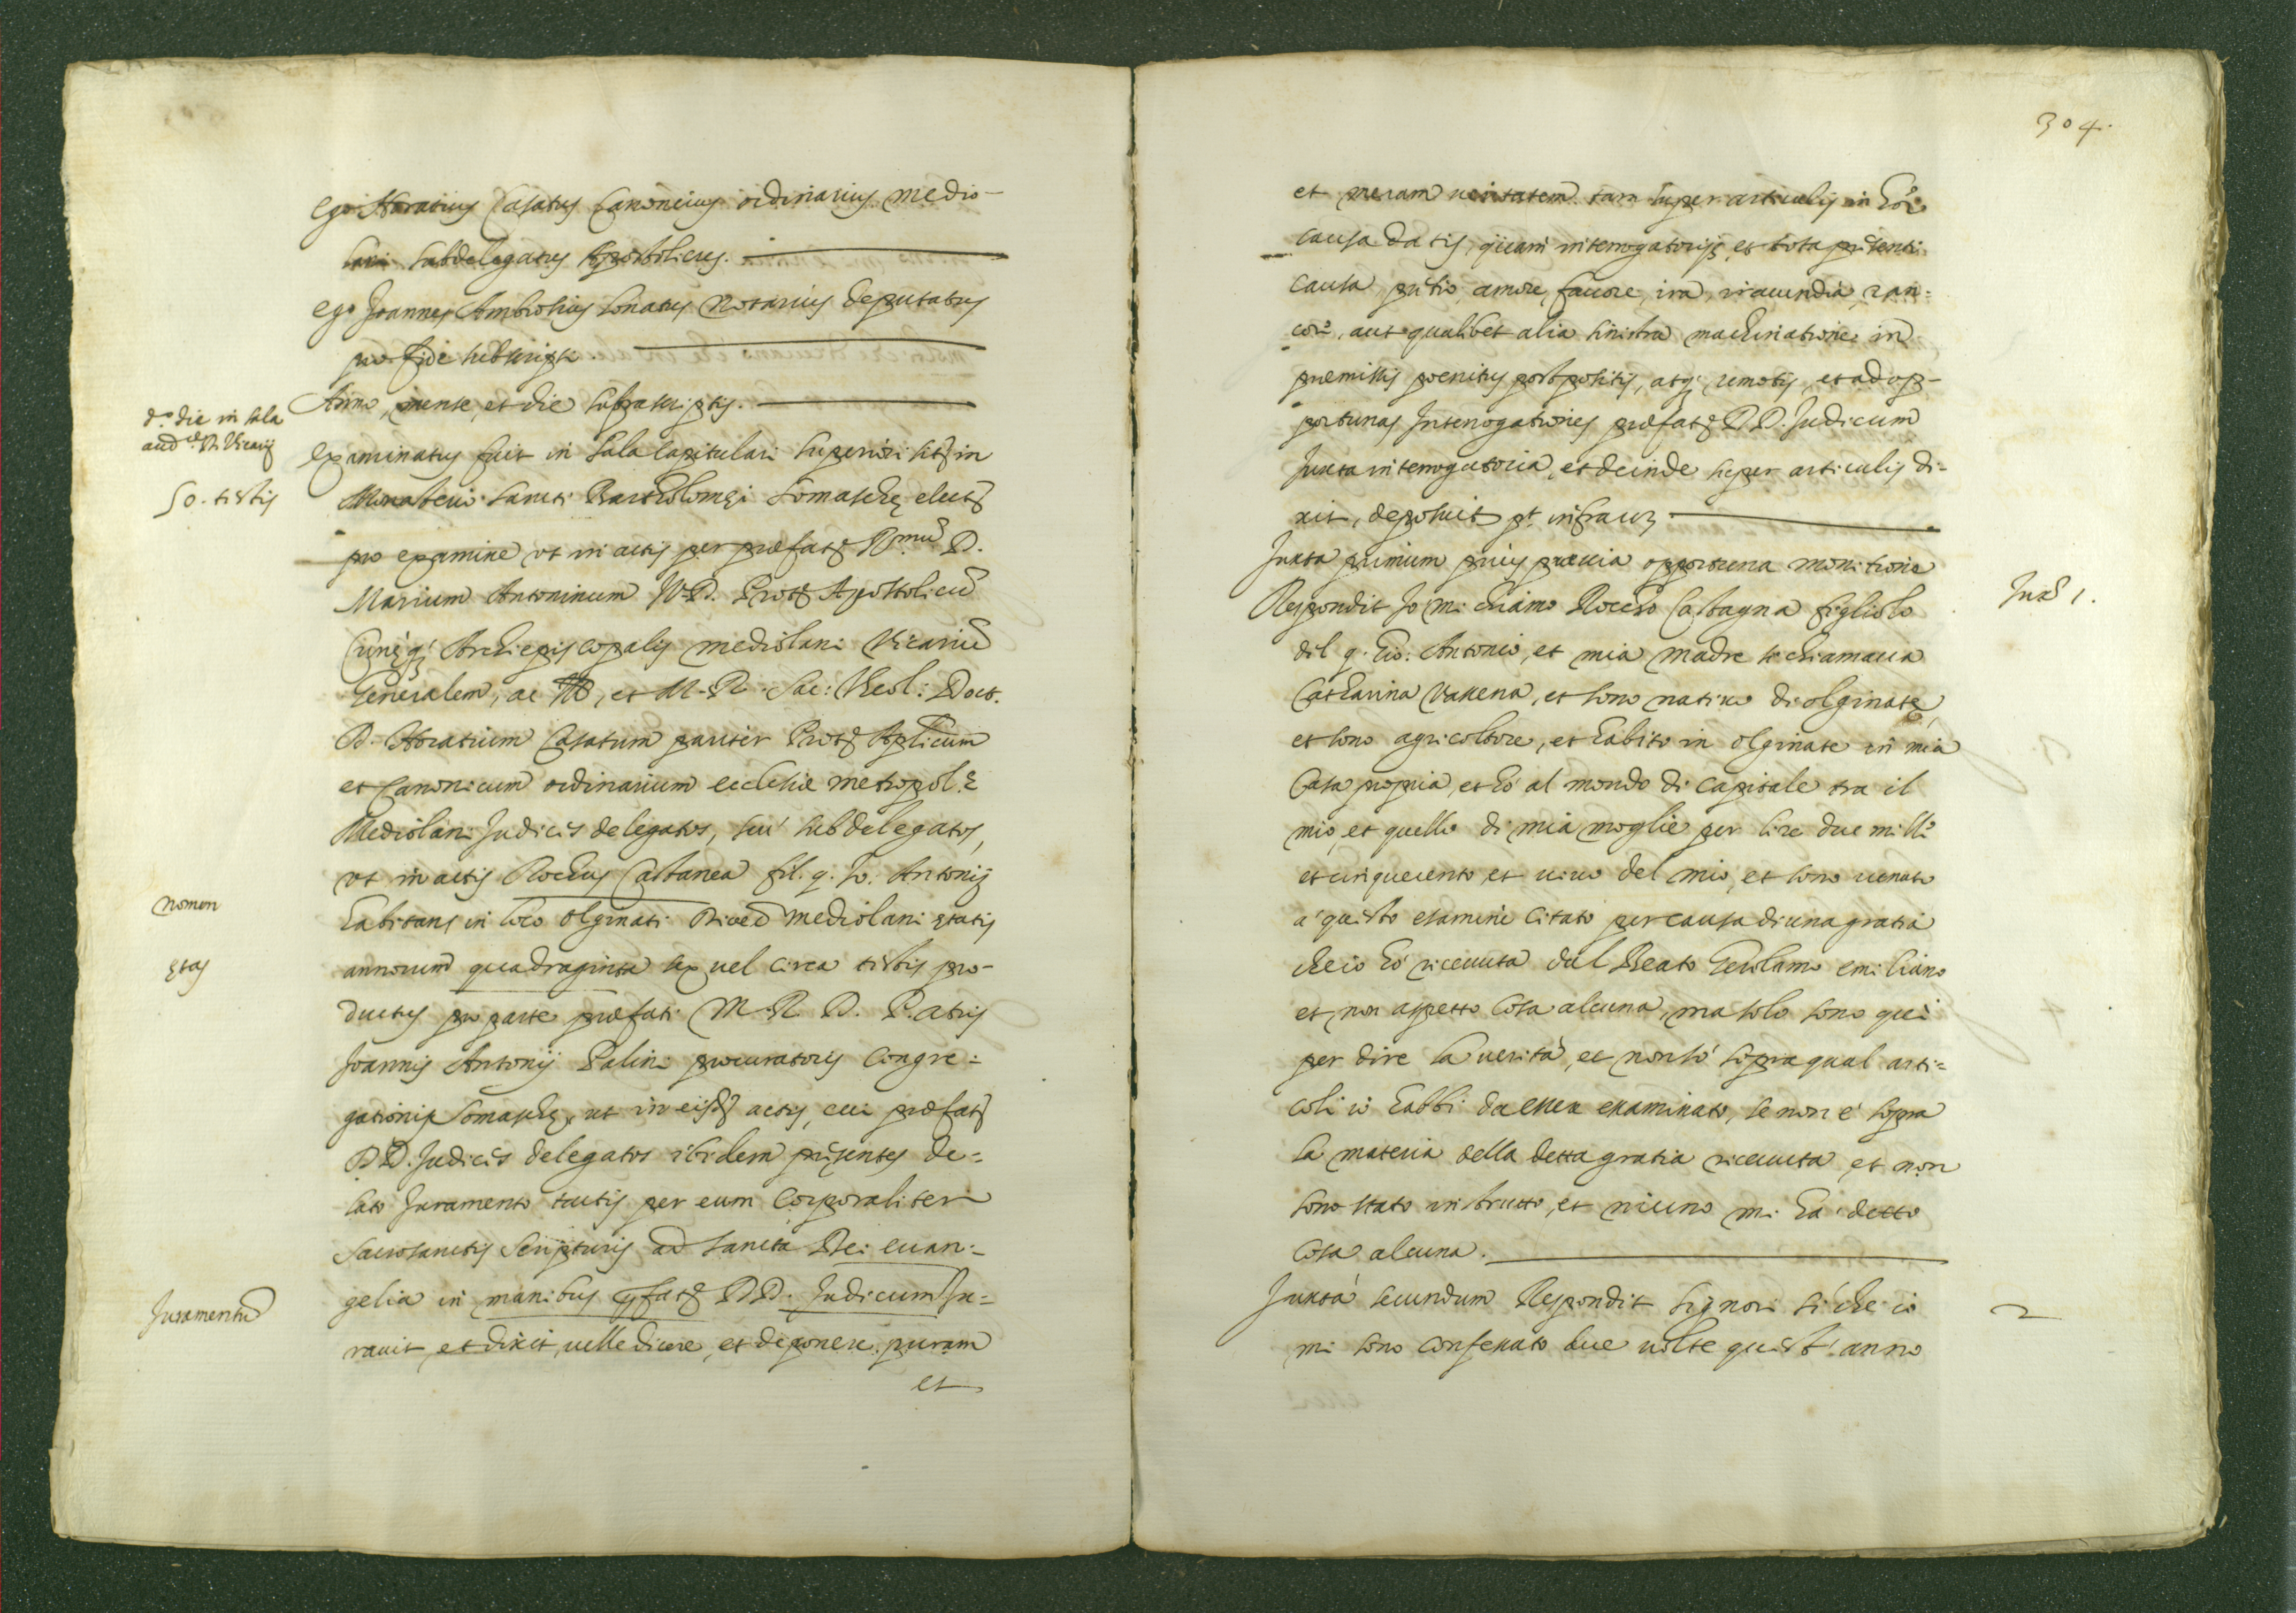 ego Horatius Casatus Canonicus ordinarius Medio-
lani subdelegatus Apostolicus.
ego Joannes Ambrosius Sonatus Notarius deputatus
pro fide subscripsi
Anno, mense, et die suprascriptis.
d.º die in sala
aud.
50. testis
examinatus fuit in sala capitulari superiori sitę in
Monasterio Sancti Bartholomęi Somaschę elect
pro examine ut in actis per prefat R.mũ D.
Marium Antoninum V.D. Prot Apostolicũ
Curięq; Archiepiscopalis mediolani Vicariũ
Generalem, ac, et M. R. Sac: Theol: Doct.
D. Horatium Casatum pariter Prot Aplicum
et Canonicum ordinarium ecclesie metropol.
Mediolani Judices delegatos, seu subdelegatos,
ut in actis Rochus Castanea fil. q. Jo. Antonij
nomen
habitans in loco Olginati Dioced mediolani ętatis
ętas
annorum quadraginta sex vel circa testis pro-
ductus pro parte prefati M. R. D. Patris
Joannis Antonij Palini procuratoris Congre=
gationis Somaschę, ut in eisd actis, cui prefat
DD. Judices delegatos ibidem presentes de=
lato Juramento tactis per eum corporaliter
Sacrosanctis Scripturis ad sancta Dei euan=
gelia in manibus prefat DD. Judicum Ju=
Juramentũ
rauit, et dixit, uelle dicere, et deponere puram
et
304.
et meram ueritatem tam super articulis in hõc
causa datis, quam interrogatorijs, et tota presenti
causa, pretio, amore, fauore, ira, iracundia, ran=
core, aut qualibet alia sinistra machinatione in
premissis poenitus postpositis, atq; remotis, et ad op-
portunas Interrogationes prefat DD. Judicum
Juxta interrogatoria, et deinde super articulis di=
xit, deposuit pt infra uz
Juxta primum prius preuia opportuna monitione
Juxᵃ 1.
Respondit Jo mi chiamo Roccho Castagna figliolo
del q. Gio: Antonio, et mia madre si chiamaua
Catharina Vassena, et sono natiuo di olginate,
et sono agricoltore, et habito in olginate in mia
Casa propria, et hò al mondo di capitale tra il
mio, et quello di mia moglie per lire due mille
et cinquecento, et uiuo del mio, et sono uenuto
a questo esamine citato per causa di una gratia
che io hò riceuuta dal Beato Gerolamo emiliano
et non aspetto cosa alcuna, ma solo sono quì
per dire la uerità, et non sò sopra qual arti=
coli io habbi da esser examinato, se non è sopra
la materia della detta gratia riceuuta, et non
sono stato instrutto, et niuno mi hà detto
cosa alcuna.
Juxta secundum Respondit signori sì che io
2
mi sono confessato due uolte quest' anno